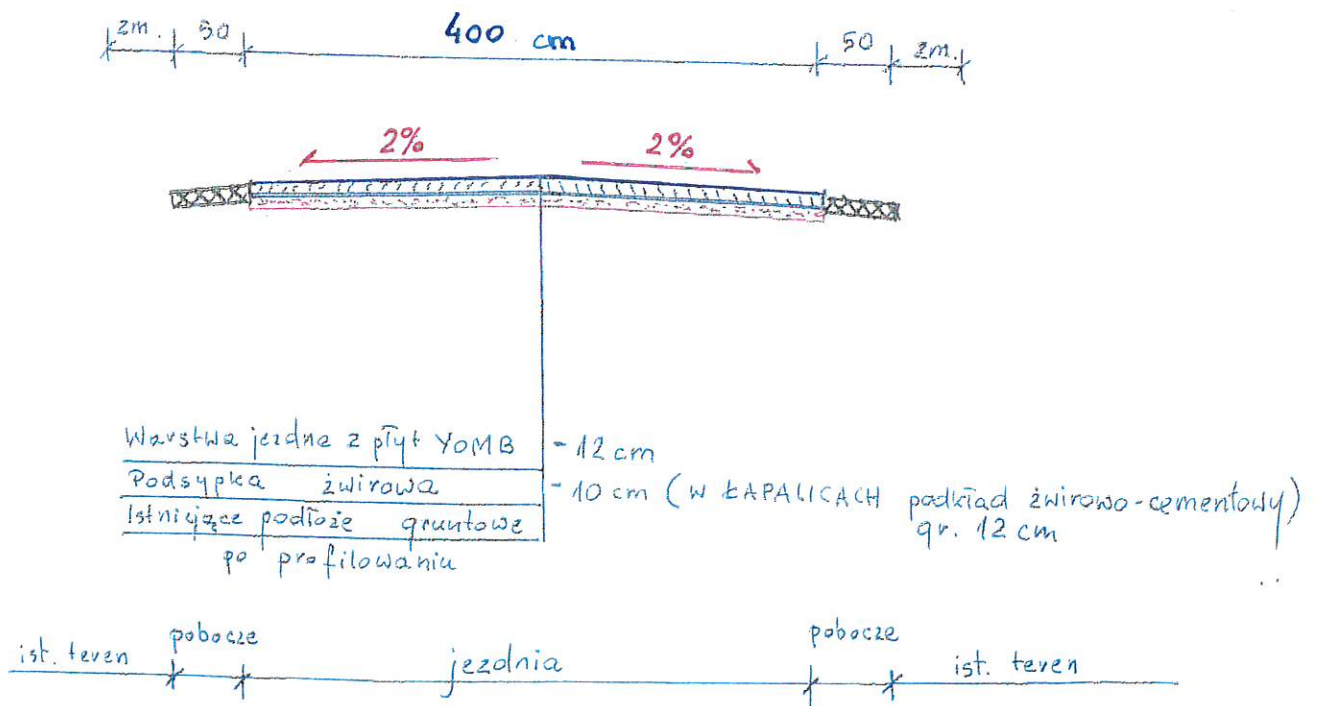 2m. 50 400 cm 50 2m.
2% 2%
Warstwa jezdna z płyt YOMB - 12 cm
Podsypka żwirowa - 10 cm (W ŁAPALICACH podkład żwirowo-cementowy)
gr. 12 cm
Istniejące podłoże gruntowe
po profilowaniu
ist. teren pobocze jezdnia pobocze ist. teren